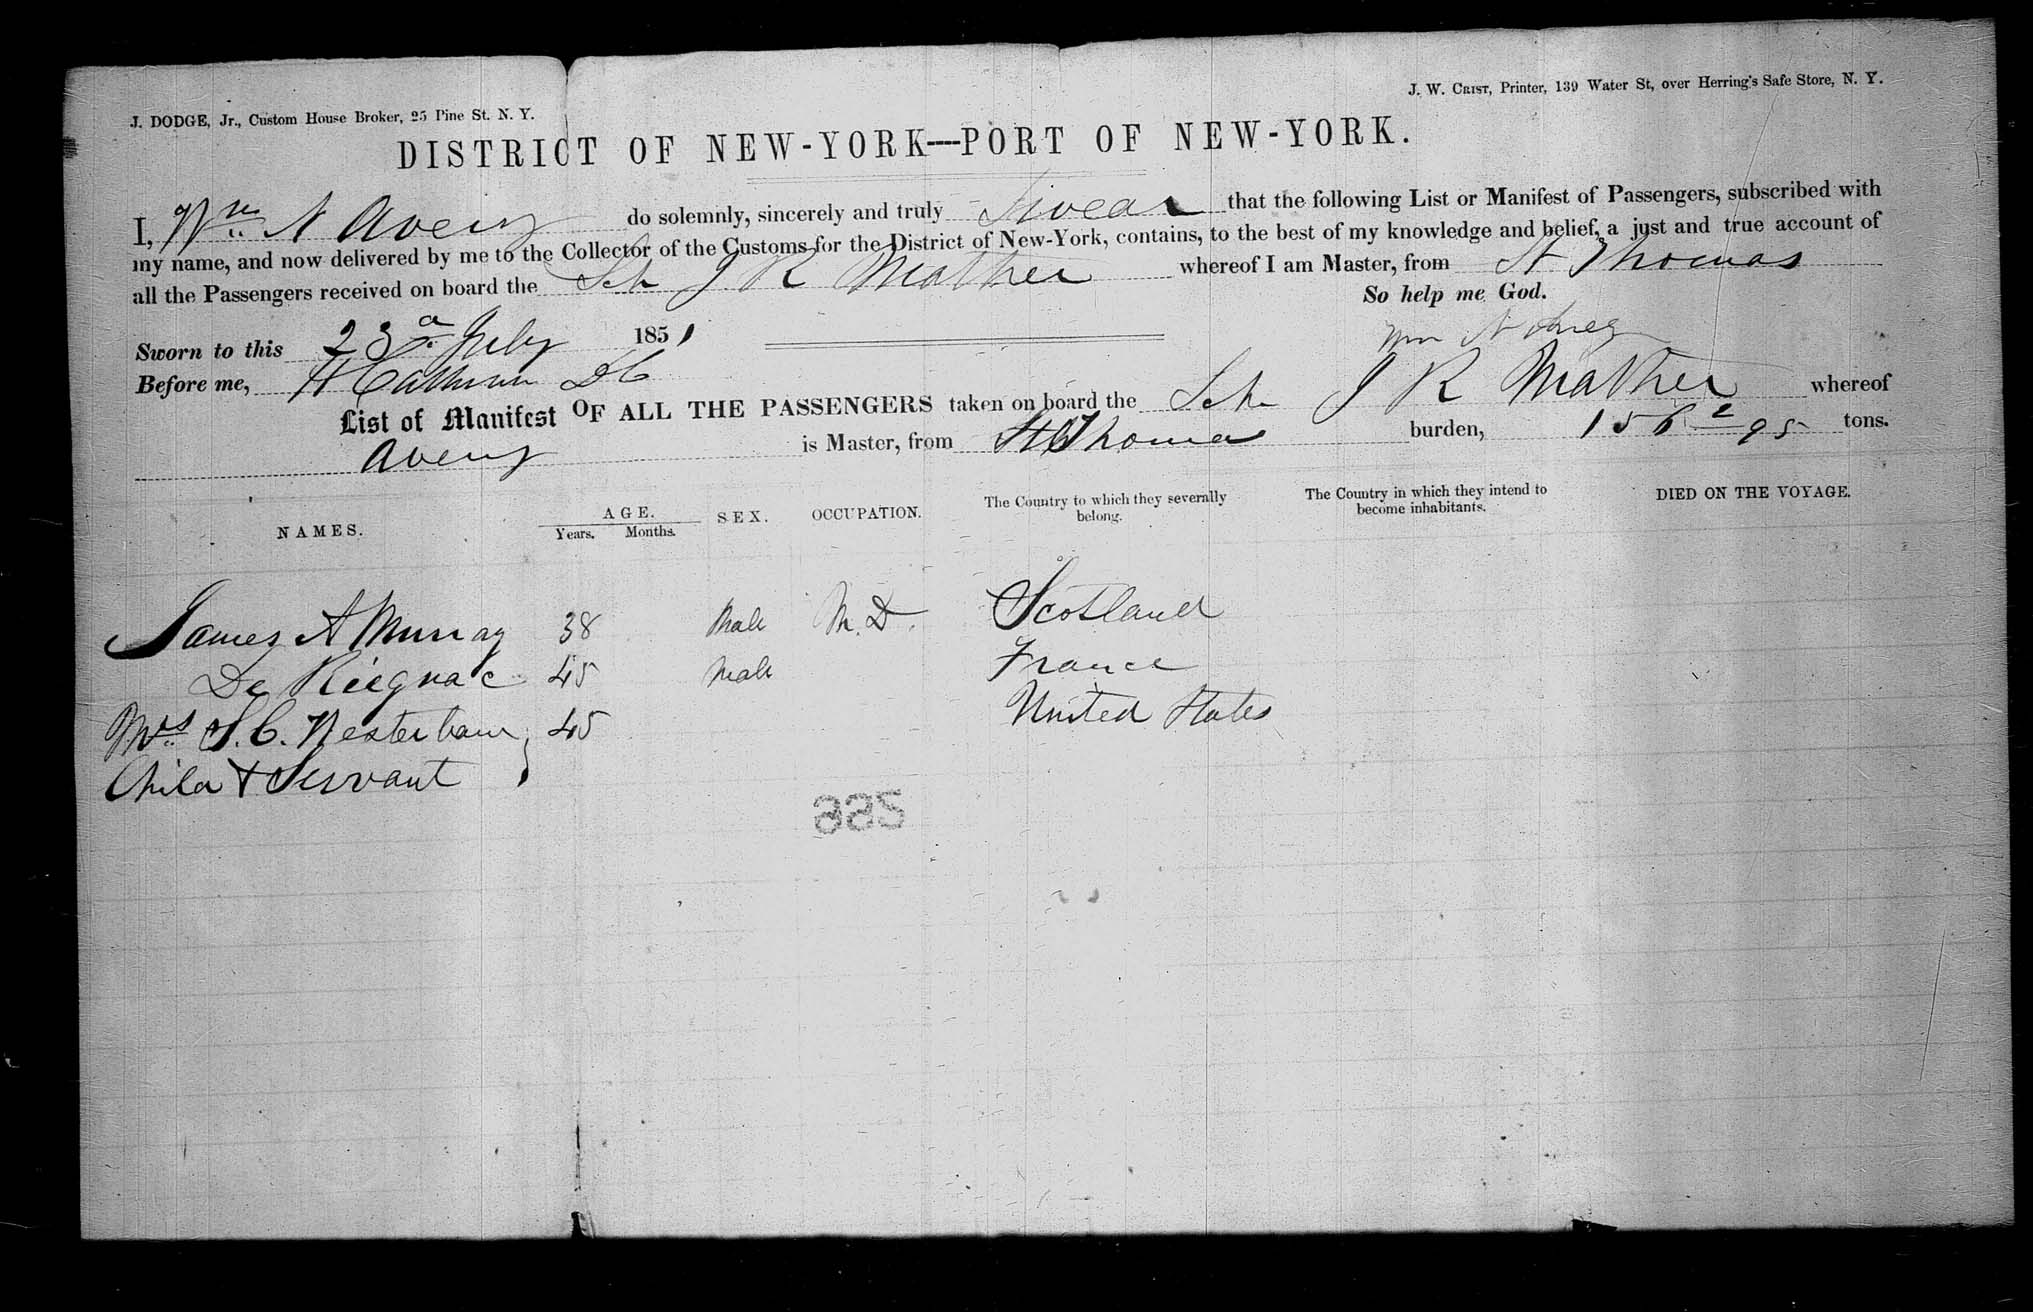 J. DODGE, Jr., Custom House Broker, 25 Pine St. N. Y.
J. W. CRIST, Printer, 139 Water St, over Herring's Safe Store, N. Y.
DISTRICT OF NEW-YORK—PORT OF NEW-YORK.
I, Wm N Avery do solemnly, sincerely and truly Swear that the following List or Manifest of Passengers, subscribed with
my name, and now delivered by me to the Collector of the Customs for the District of New-York, contains, to the best of my knowledge and belief, a just and true account of
all the Passengers received on board the Sch J. R Mather whereof I am Master, from St Thomas
So help me God.
Sworn to this 23d July 1851
Wm N Avery
Before me, H Calhoun DC
List of Manifest OF ALL THE PASSENGERS taken on board the Sch J R Mather whereof
Avery is Master, from St Thomas burden, 156 2/95 tons.
NAMES. AGE. Years. Months. SEX. OCCUPATION. The Country to which they severally belong. The Country in which they intend to become inhabitants. DIED ON THE VOYAGE.
James A Murray 38 Male M.D. Scotland
De 45 Male France
Mrs S. C. 45 United States
Child & Servant